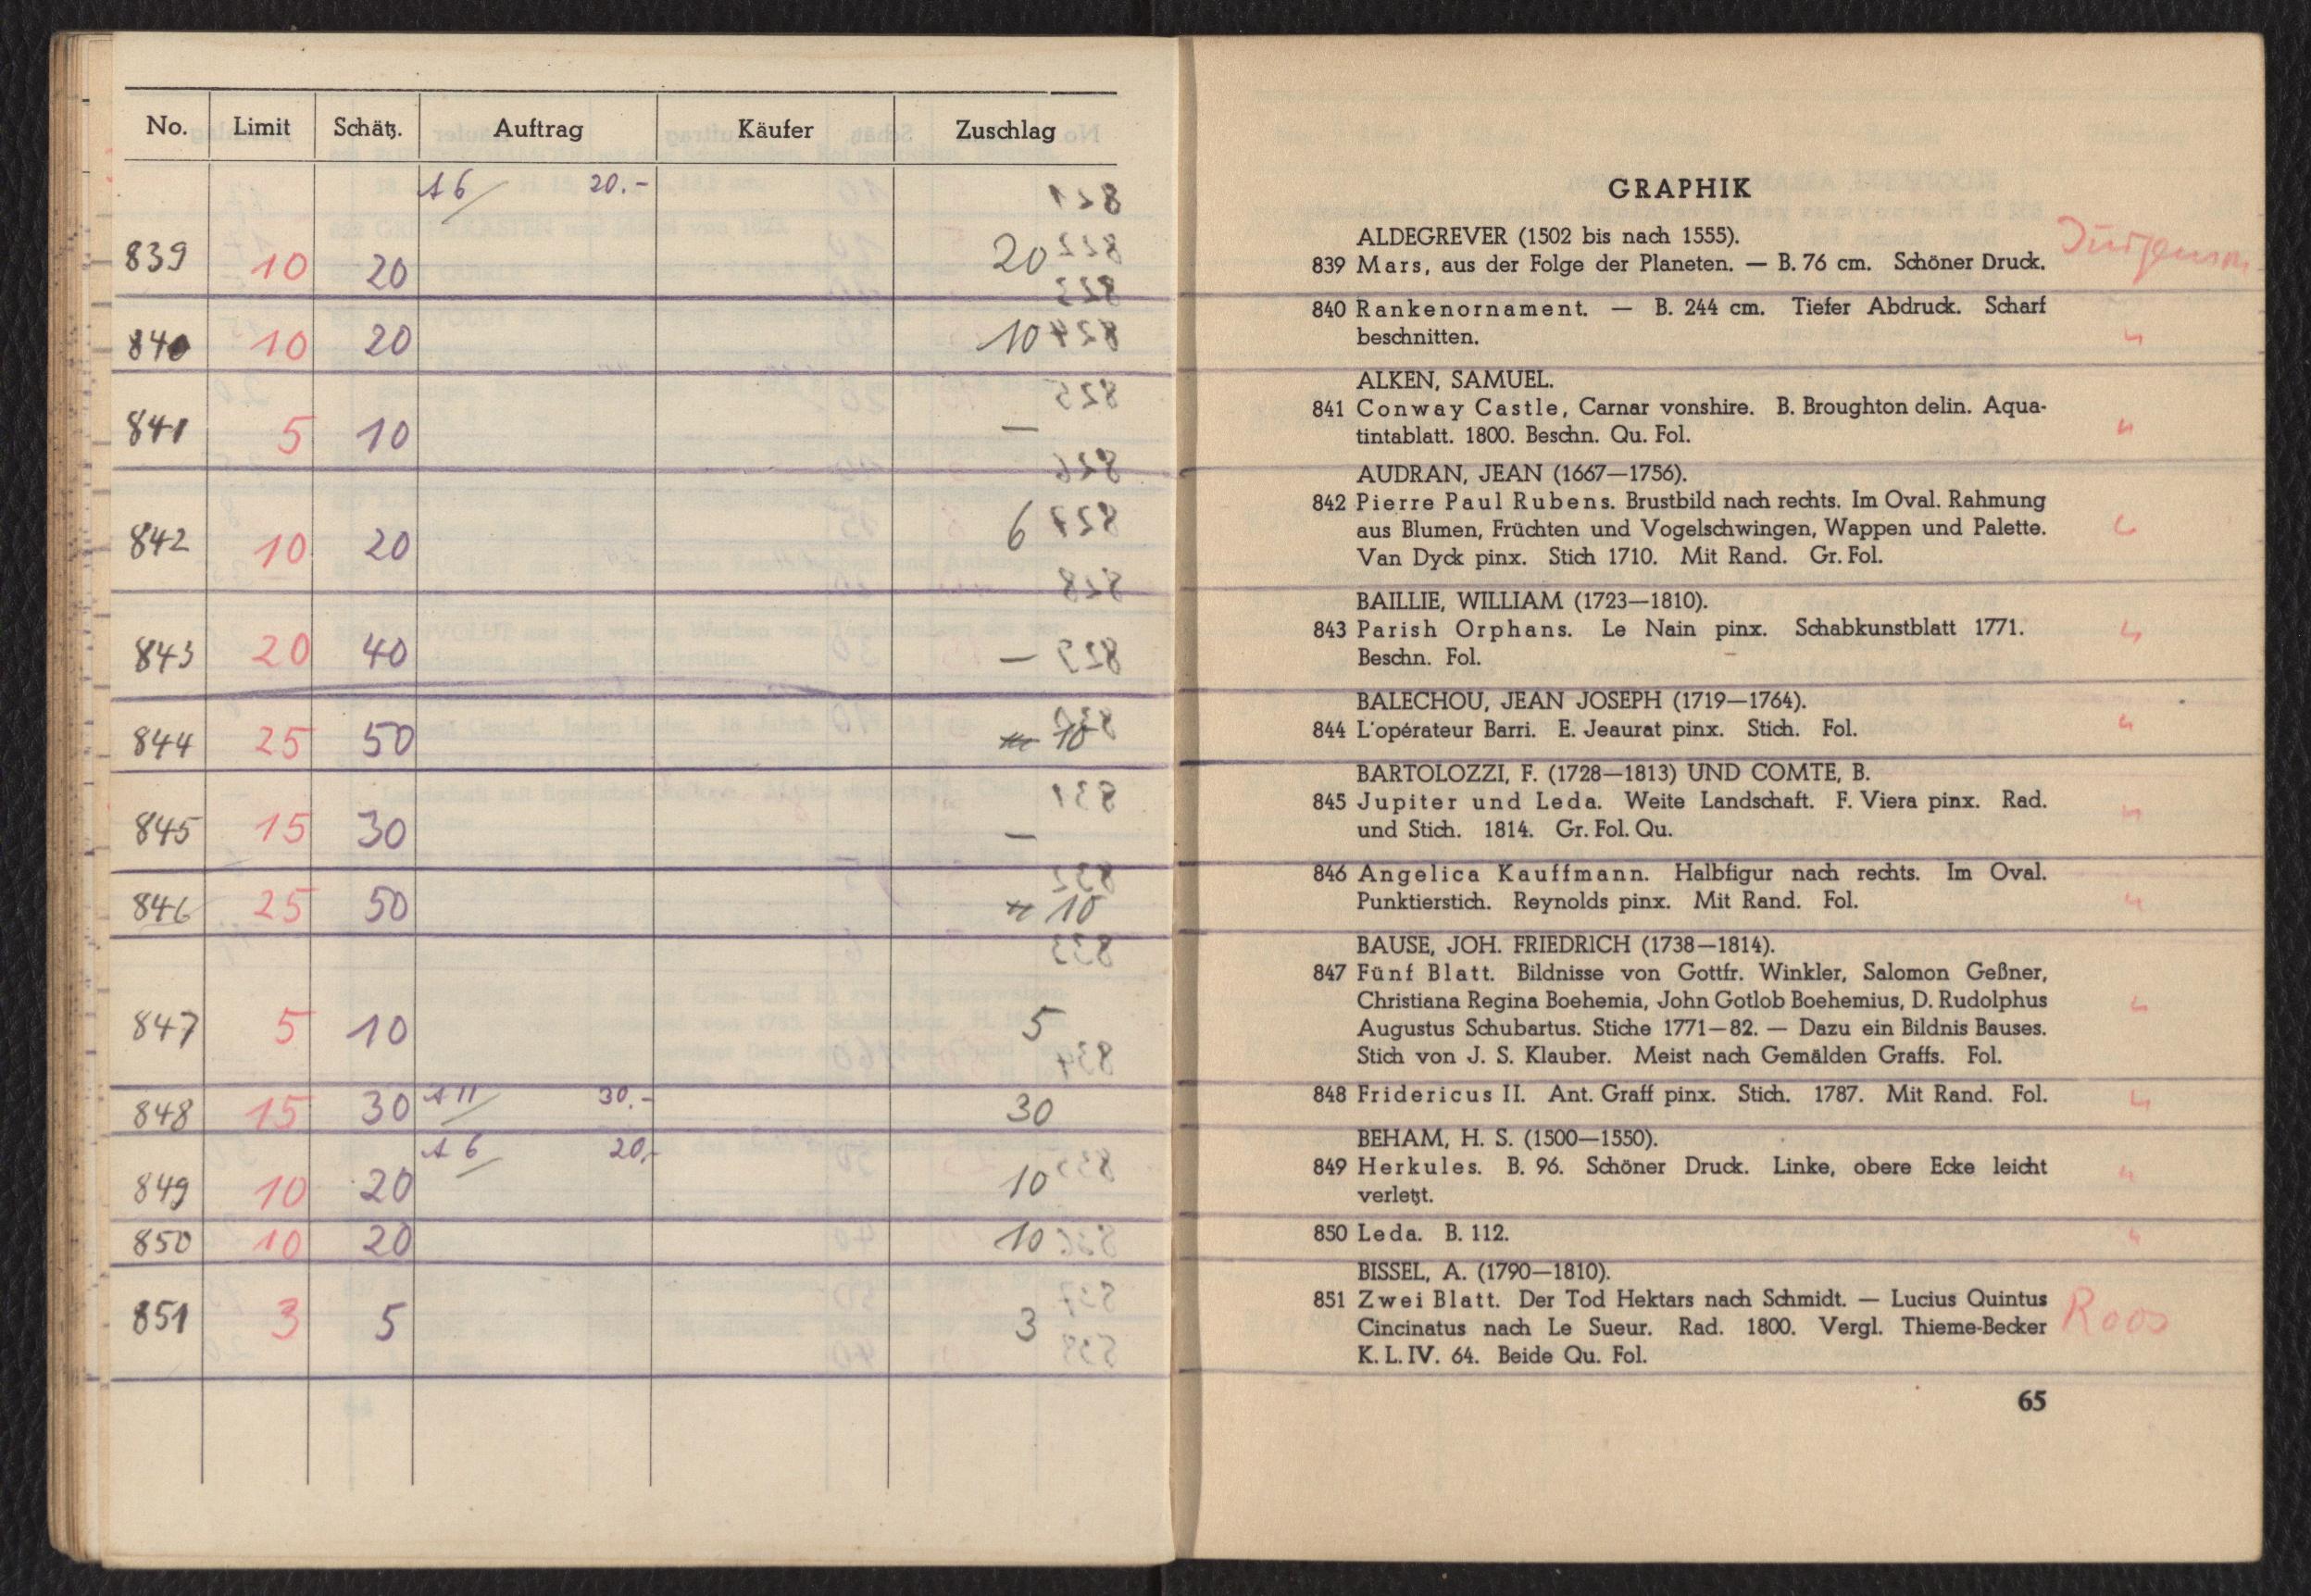 No. Limit Schätz. Auftrag Käufer Zuschlag
A 6 20.-
839 10 20 20
840 10 20 10
841 5 10 —
842 10 20 6
843 20 40 — 
844 25 50 10
845 15 30 —
846 25 50 10
847 5 10 5
848 15 30 A 11 30.- 30
A 6 20,-
849 10 20 10
850 10 20 10
851 3 5 3
GRAPHIK
ALDEGREVER (1502 bis nach 1555).
839 Mars, aus der Folge der Planeten. — B. 76 cm. Schöner Druck.
840 Rankenornament. — B. 244 cm. Tiefer Abdruck. Scharf
beschnitten.
ALKEN, SAMUEL.
841 Conway Castle, Carnar vonshire. B. Broughton delin. Aqua-
tintablatt. 1800. Beschn. Qu. Fol.
AUDRAN, JEAN (1667—1756).
842 Pierre Paul Rubens. Brustbild nach rechts. Im Oval. Rahmung
aus Blumen, Früchten und Vogelschwingen, Wappen und Palette.
Van Dyck pinx. Stich 1710. Mit Rand. Gr. Fol.
BAILLIE, WILLIAM (1723—1810).
843 Parish Orphans. Le Nain pinx. Schabkunstblatt 1771.
Beschn. Fol.
BALECHOU, JEAN JOSEPH (1719—1764).
844 L'opérateur Barri. E. Jeaurat pinx. Stich. Fol.
BARTOLOZZI, F. (1728—1813) UND COMTE, B.
845 Jupiter und Leda. Weite Landschaft. F. Viera pinx. Rad.
und Stich. 1814. Gr. Fol. Qu.
846 Angelica Kauffmann. Halbfigur nach rechts. Im Oval.
Punktierstich. Reynolds pinx. Mit Rand. Fol.
BAUSE, JOH. FRIEDRICH (1738—1814).
847 Fünf Blatt. Bildnisse von Gottfr. Winkler, Salomon Geßner,
Christiana Regina Boehemia, John Gotlob Boehemius, D. Rudolphus
Augustus Schubartus. Stiche 1771—82. — Dazu ein Bildnis Bauses.
Stich von J. S. Klauber. Meist nach Gemälden Graffs. Fol.
848 Fridericus II. Ant. Graff pinx. Stich. 1787. Mit Rand. Fol.
BEHAM, H. S. (1500—1550).
849 Herkules. B. 96. Schöner Druck. Linke, obere Ecke leicht
verletzt.
850 Leda. B. 112.
BISSEL, A. (1790—1810).
851 Zwei Blatt. Der Tod Hektars nach Schmidt. — Lucius Quintus
Cincinatus nach Le Sueur. Rad. 1800. Vergl. Thieme-Becker
K. L. IV. 64. Beide Qu. Fol.
Roos
65